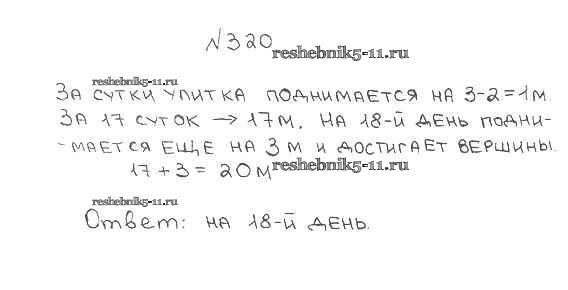 №320
reshebnik5-11.ru
reshebnik5-11.ru
За сутки улитка поднимается на 3-2=1м.
За 17 суток → 17м. На 18-й день подни-
-мается еще на 3 м и достигает вершины.
17+3=20м
reshebnik5-11.ru
reshebnik5-11.ru
Ответ: на 18-й день.